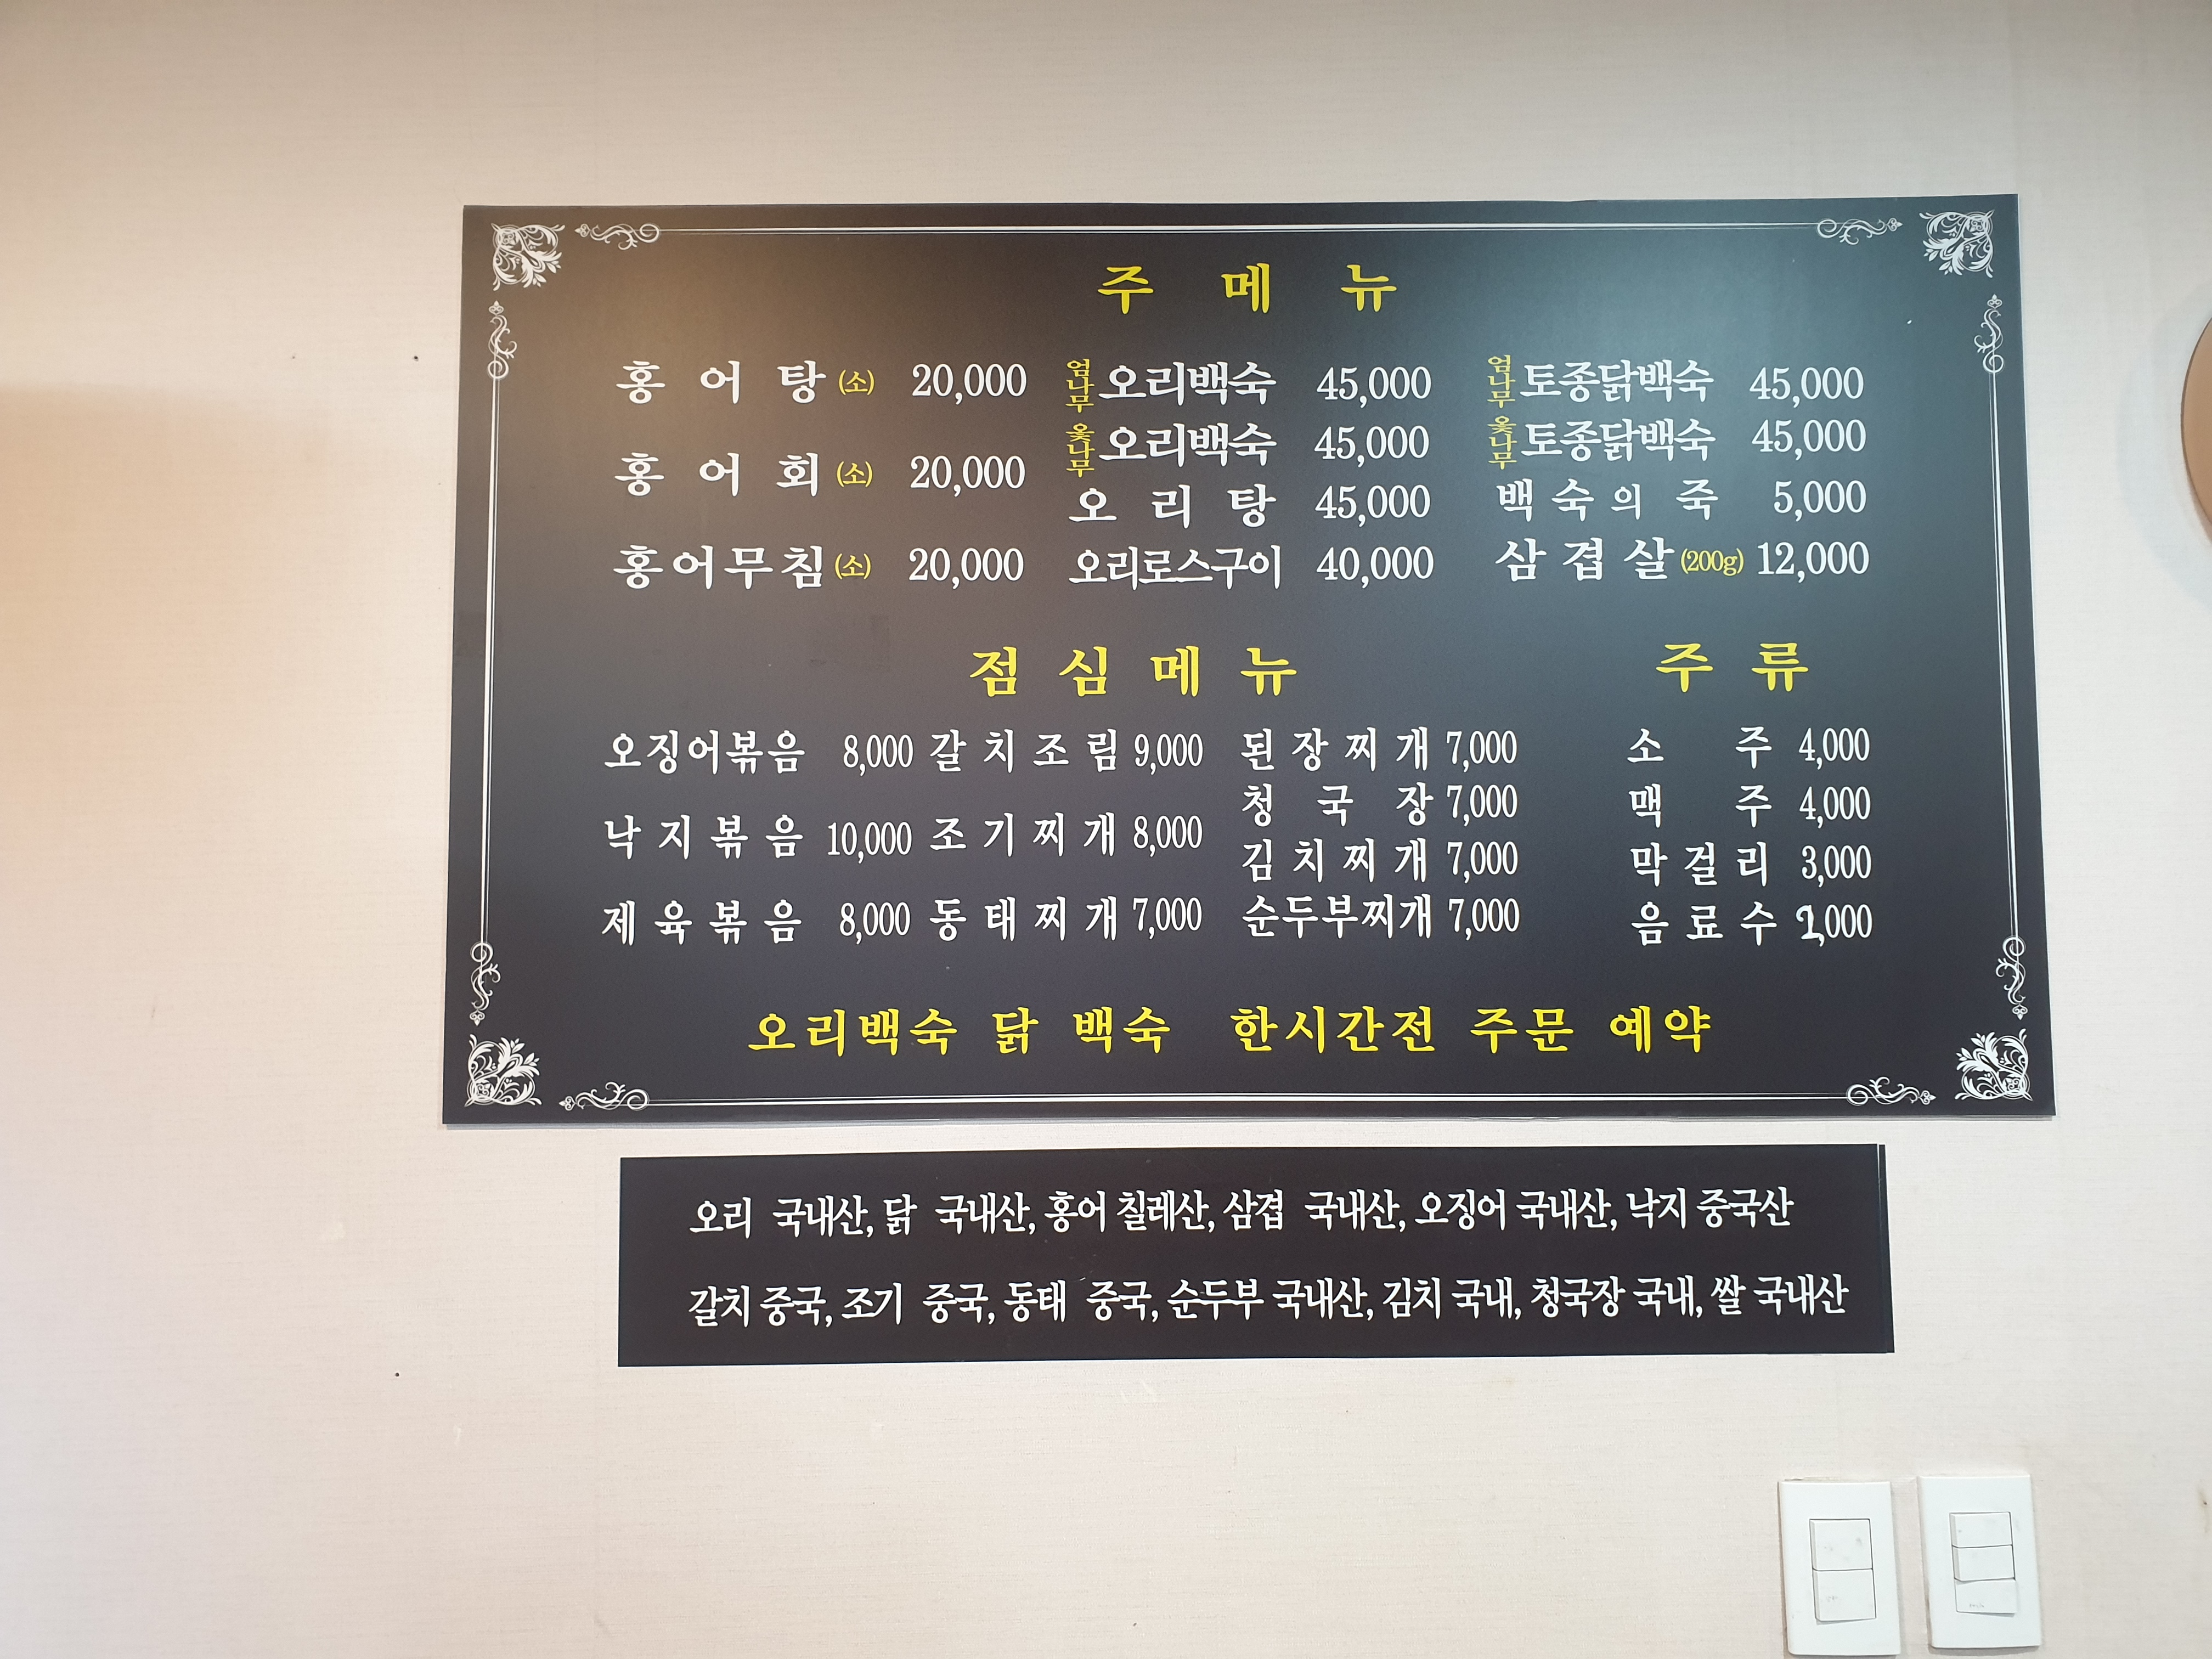 주 메 뉴
홍 어 탕 (소) 20,000
홍 어 회 (소) 20,000
홍어무침 (소) 20,000
엄나무 오리백숙 45,000
옻나무 오리백숙 45,000
오 리 탕 45,000
오리로스구이 40,000
엄나무 토종닭백숙 45,000
옻나무 토종닭백숙 45,000
백 숙 의 죽 5,000
삼 겹 살 (200g) 12,000
점 심 메 뉴
오징어볶음 8,000
낙 지 볶 음 10,000
제 육 볶 음 8,000
갈 치 조 림 9,000
조 기 찌 개 8,000
동 태 찌 개 7,000
된 장 찌 개 7,000
청 국 장 7,000
김 치 찌 개 7,000
순두부찌개 7,000
주 류
소 주 4,000
맥 주 4,000
막 걸 리 3,000
음 료 수 2,000
오리백숙 닭 백숙 한시간전 주문 예약
오리 국내산, 닭 국내산, 홍어 칠레산, 삼겹 국내산, 오징어 국내산, 낙지 중국산
갈치 중국, 조기 중국, 동태 중국, 순두부 국내산, 김치 국내, 청국장 국내, 쌀 국내산